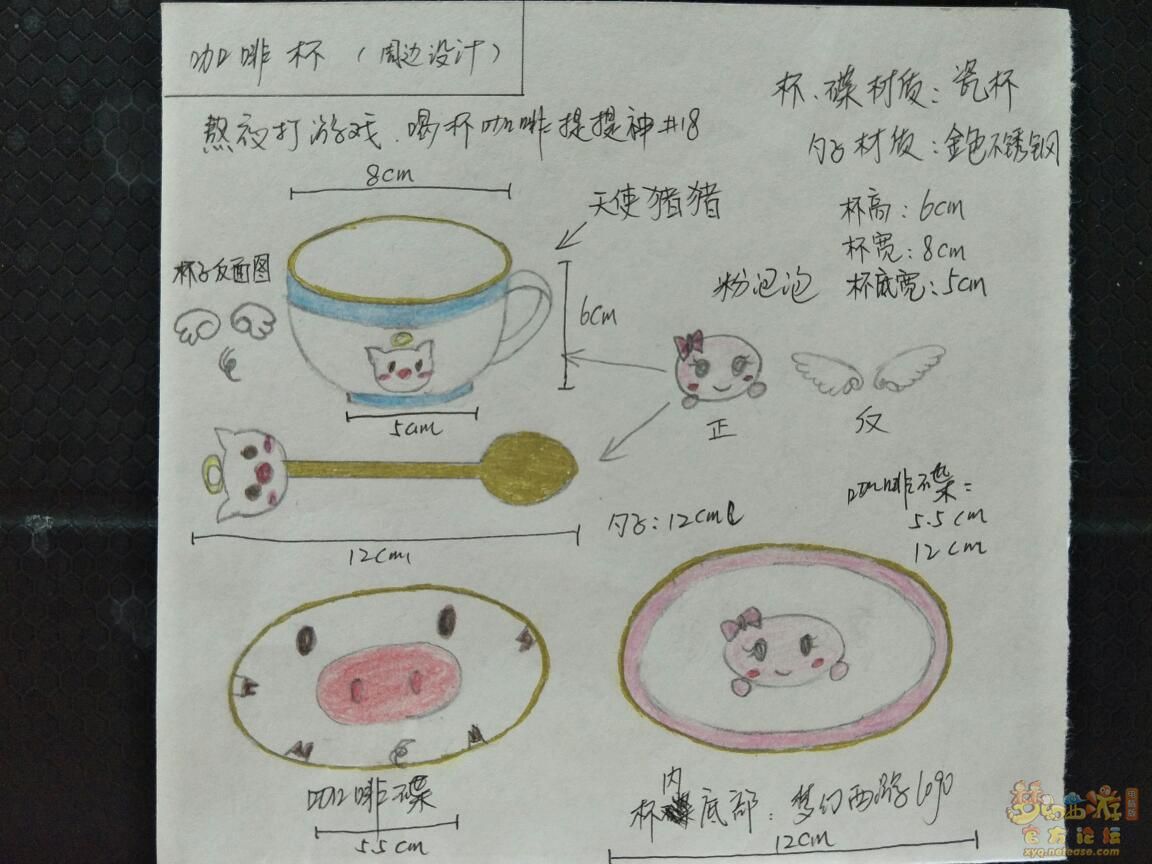 咖啡杯（周边设计）
熬夜打游戏.喝杯咖啡提提神#18
杯、碟材质：瓷杯
勺子材质：金色不锈钢
8cm
天使猪猪
杯高：6cm
杯宽：8cm
杯底宽：5cm
杯子反面图
粉泡泡
6cm
正
反
5cm
咖啡碟：
5.5cm
12cm
勺子：12cm
12cm
咖啡碟
5.5cm
杯内底部：梦幻西游logo
12cm
梦幻西游
电脑版
官方论坛
xyq.netease.com